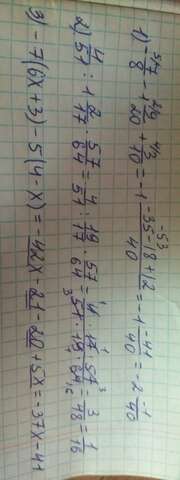 1) -7/8 - 1 4/20 + 3/10 = -1 (-35-8+12)/40 = -1 -41/40 = -2 -1/40
2) 4/57 : 1 2/17 · 57/64 = 4/51 : 19/17 · 57/64 = 4·17·57/51·19·64 = 3/48 = 1/16
3) -7(6x+3)-5(4-x) = -42x-21-20+5x = 37x+41